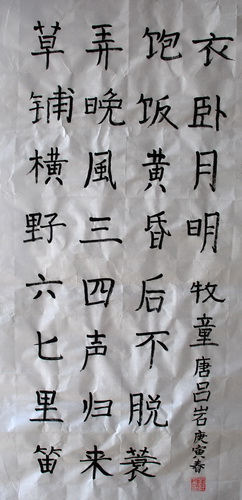 草铺横野六七里笛
弄晚風三四声归来
饱饭黄昏后不脱蓑
衣卧月明 牧童 唐吕岩 庚寅春